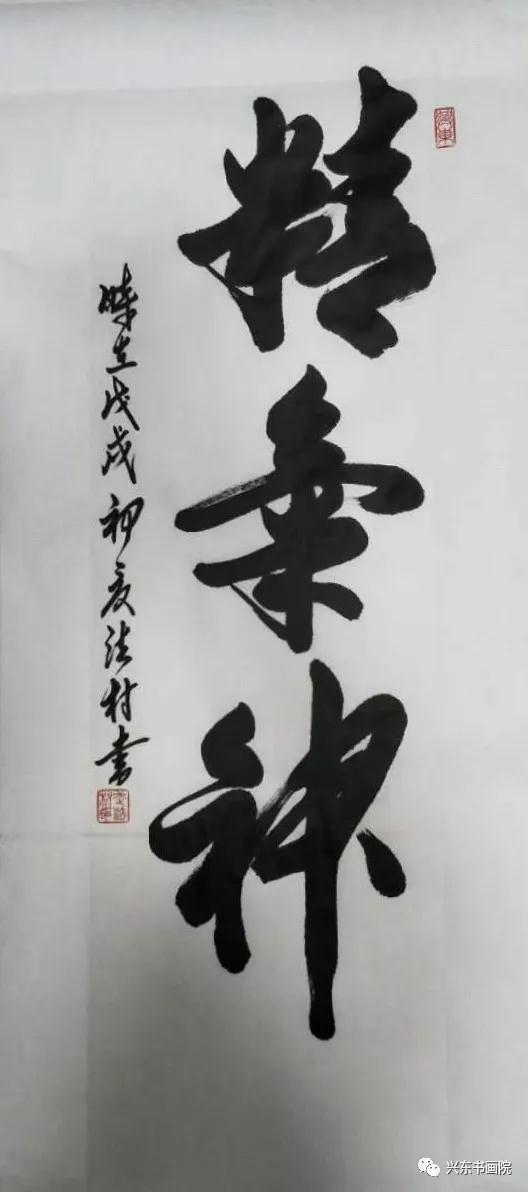 精氣神
時在戊戌初夏法村書
兴东书画院